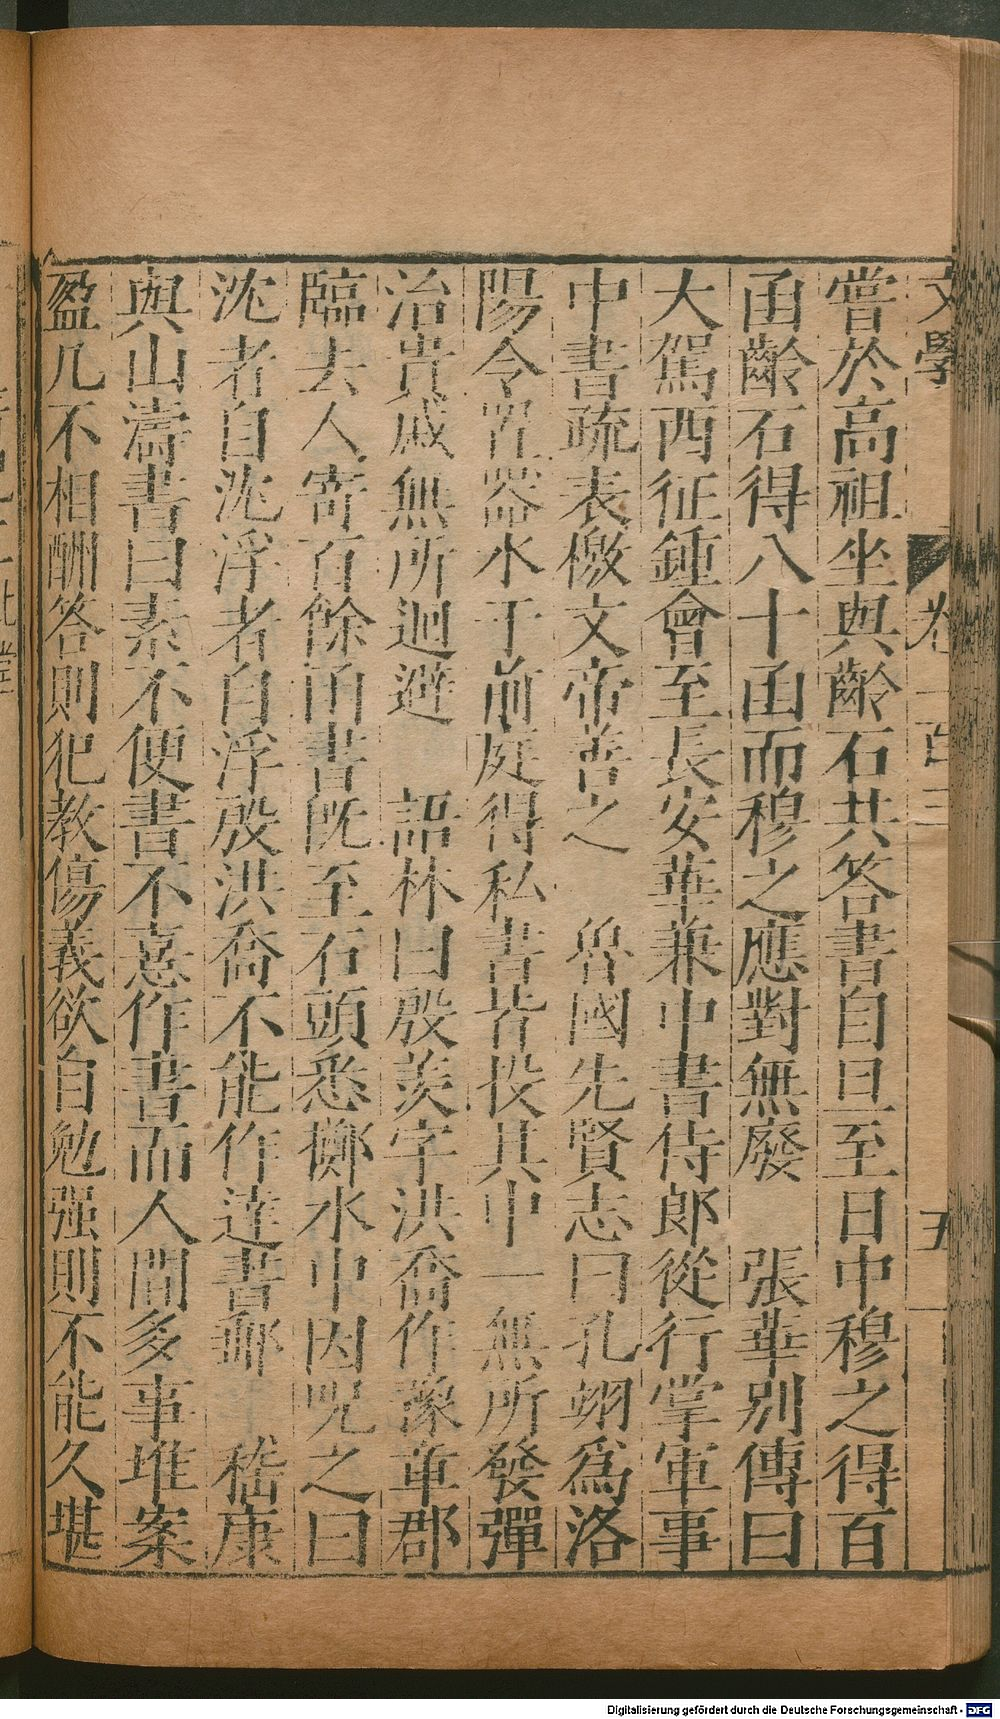 文學 卷一百三 五
嘗於高祖坐與齡石共答書自旦至日中穆之得百
函齡石得八十函而穆之應對無廢 張華別傳曰
大駕西征鍾會至長安華兼中書侍郎從行掌軍事
中書疏表檄文帝善之 魯國先賢志曰孔翊爲洛
陽令置器水于前庭得私書皆投其中一無所發彈
治貴戚無所迴避 語林曰殷羨字洪喬作豫章郡
臨去人寄百餘函書既至石頭悉擲水中因咒之曰
沈者自沈浮者自浮殷洪喬不能作達書郵 嵇康
與山濤書曰素不便書不憙作書而人間多事堆案
盈几不相酬答則犯教傷義欲自勉强則不能久堪
Digitalisierung gefördert durch die Deutsche Forschungsgemeinschaft - DFG